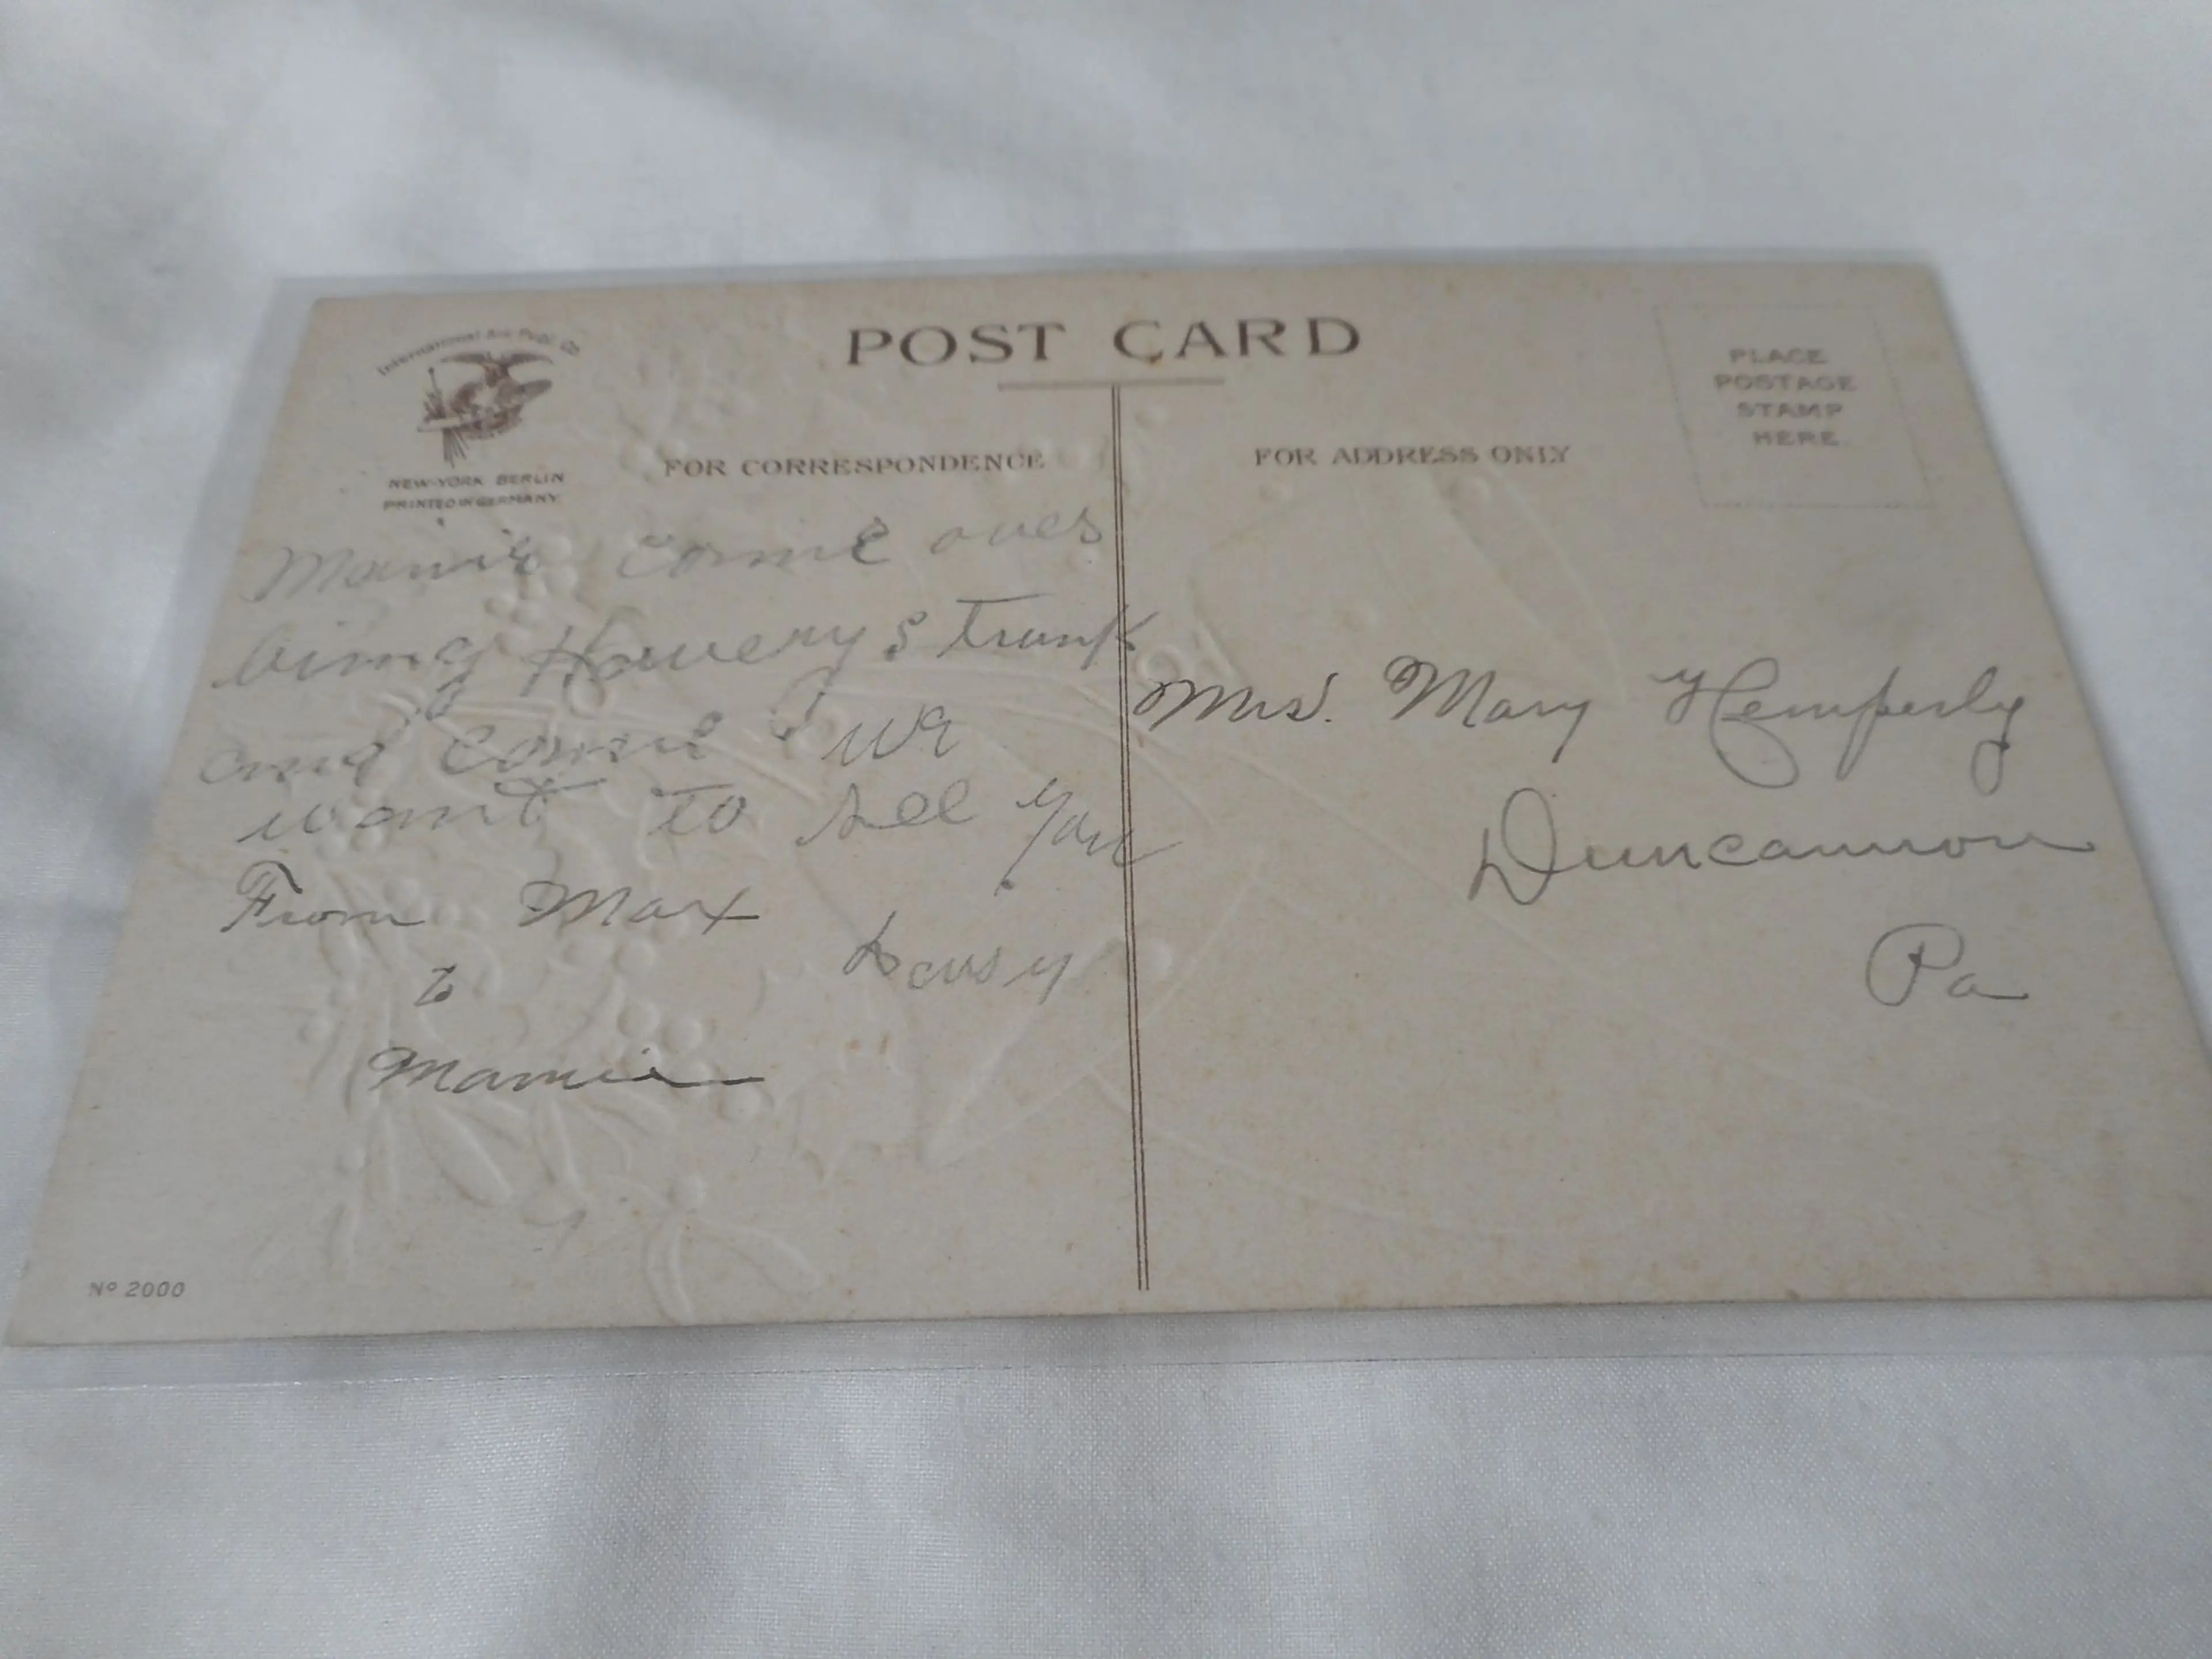 International Art Publ. Co.
NEW-YORK BERLIN
PRINTED IN GERMANY
POST CARD
PLACE
POSTAGE
STAMP
HERE
FOR CORRESPONDENCE
FOR ADDRESS ONLY
Mamie come over
bring Havery s trunk
and come we
want to see you
From Max
to
Mamie
Mrs. Mary Hemperly
Duncannon
Pa
Nº 2000